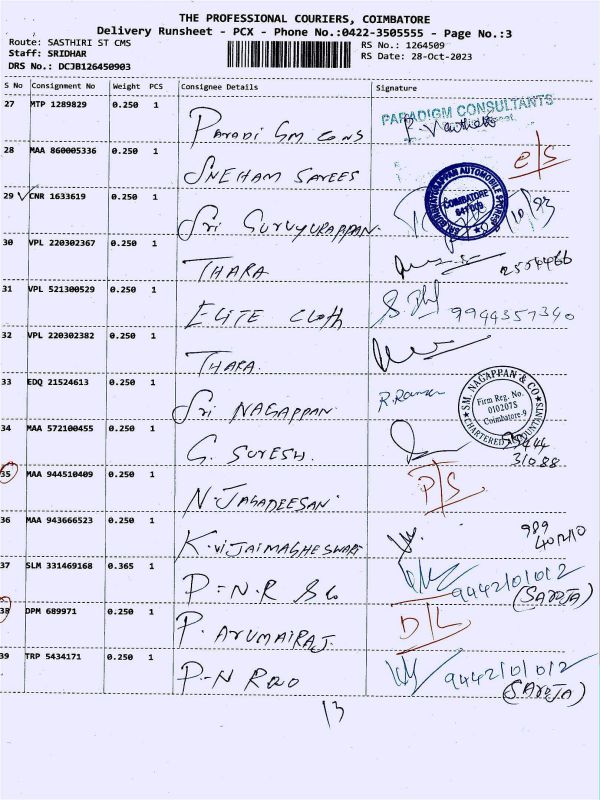 THE PROFESSIONAL COURIERS, COIMBATORE
Delivery Runsheet - PCX - Phone No.:0422-3505555 - Page No.:3
Route: SASTHIRI ST CMS
Staff: SRIDHAR
DRS No.: DCJB126450903
RS No.: 1264509
RS Date: 28-Oct-2023
S No Consignment No Weight PCS Consignee Details Signature
27 MTP 1289829 0.250 1 Paradi Gm Cons PARADIGM CONSULTANTS
28 MAA 860005336 0.250 1 SNEHAM SAREES
29 CNR 1633619 0.250 1 Sri GURUYURAPPAN COIMBATORE
30 VPL 220302367 0.250 1 THARA
31 VPL 521300529 0.250 1 ELITE Cloth 9944357340
32 VPL 220302382 0.250 1 THARA.
33 EDQ 21524613 0.250 1 Sri NAGAPPAN SM. NAGAPPAN & CO Firm Reg. No. 010207S Coimbatore-9 CHARTERED ACCOUNTANTS
34 MAA 572100455 0.250 1 G. SURESH. 31088
35 MAA 944510409 0.250 1 N. JAGADEESAN P/S
36 MAA 943666523 0.250 1 K. VIJAIMAGHESWARI 989
37 SLM 331469168 0.365 1 P.N.R 9442101012
(SAROJA)
38 DPM 689971 0.250 1 P. ARUMAIRAJ. D/L
39 TRP 5434171 0.250 1 P-N Rao 9442101012
(SAROJA)
13